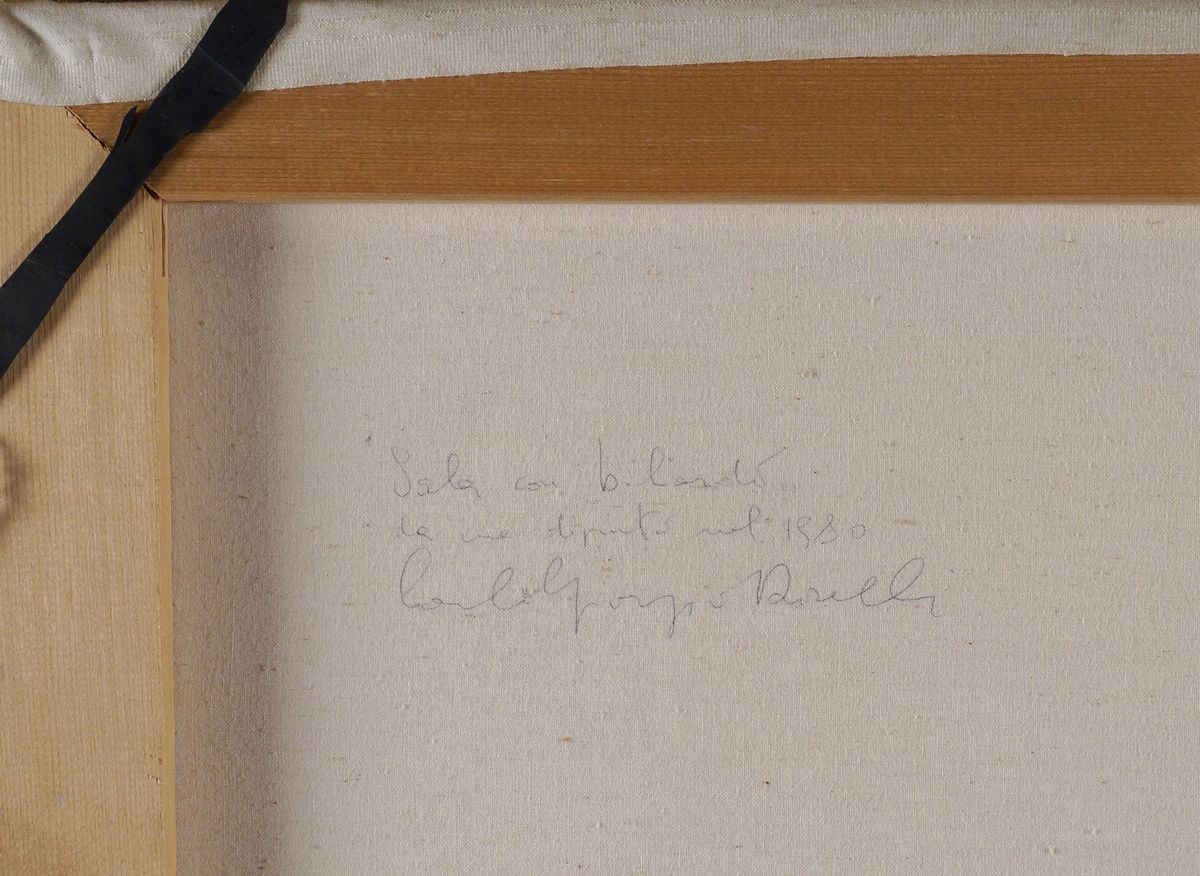 Sala con biliardo
da me dipinto nel 1980
Carlo Giorgio